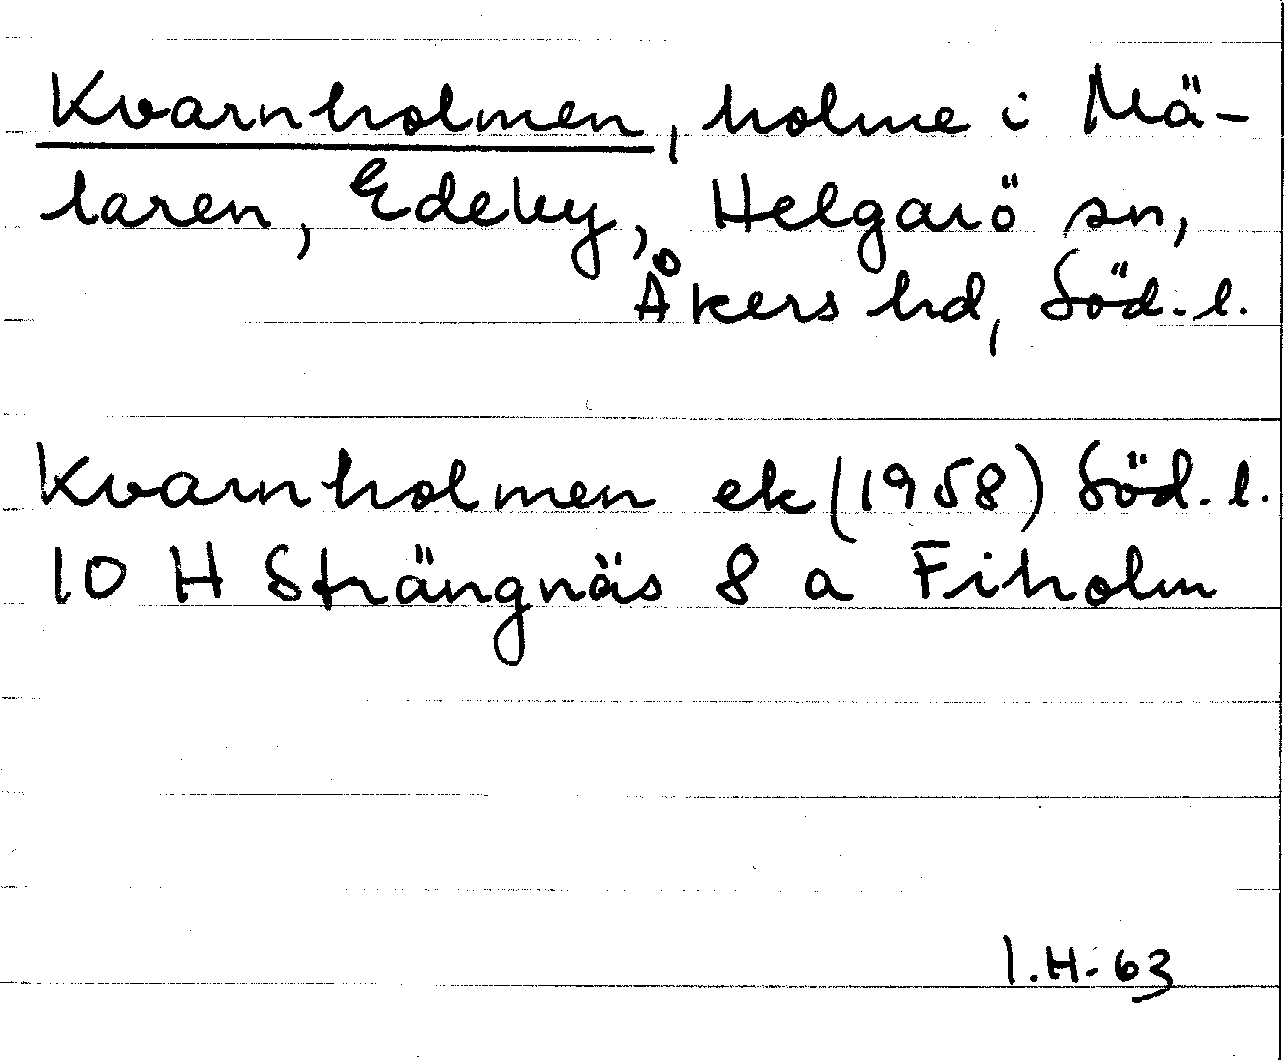 Kvarnholmen, holme i Mä-
laren, Edeby, Helgarö sn,
Åkers hd, Söd. l.
Kvarnholmen ek (1958) Söd. l.
10 H Strängnäs 8 a Fiholm
I.H. 63